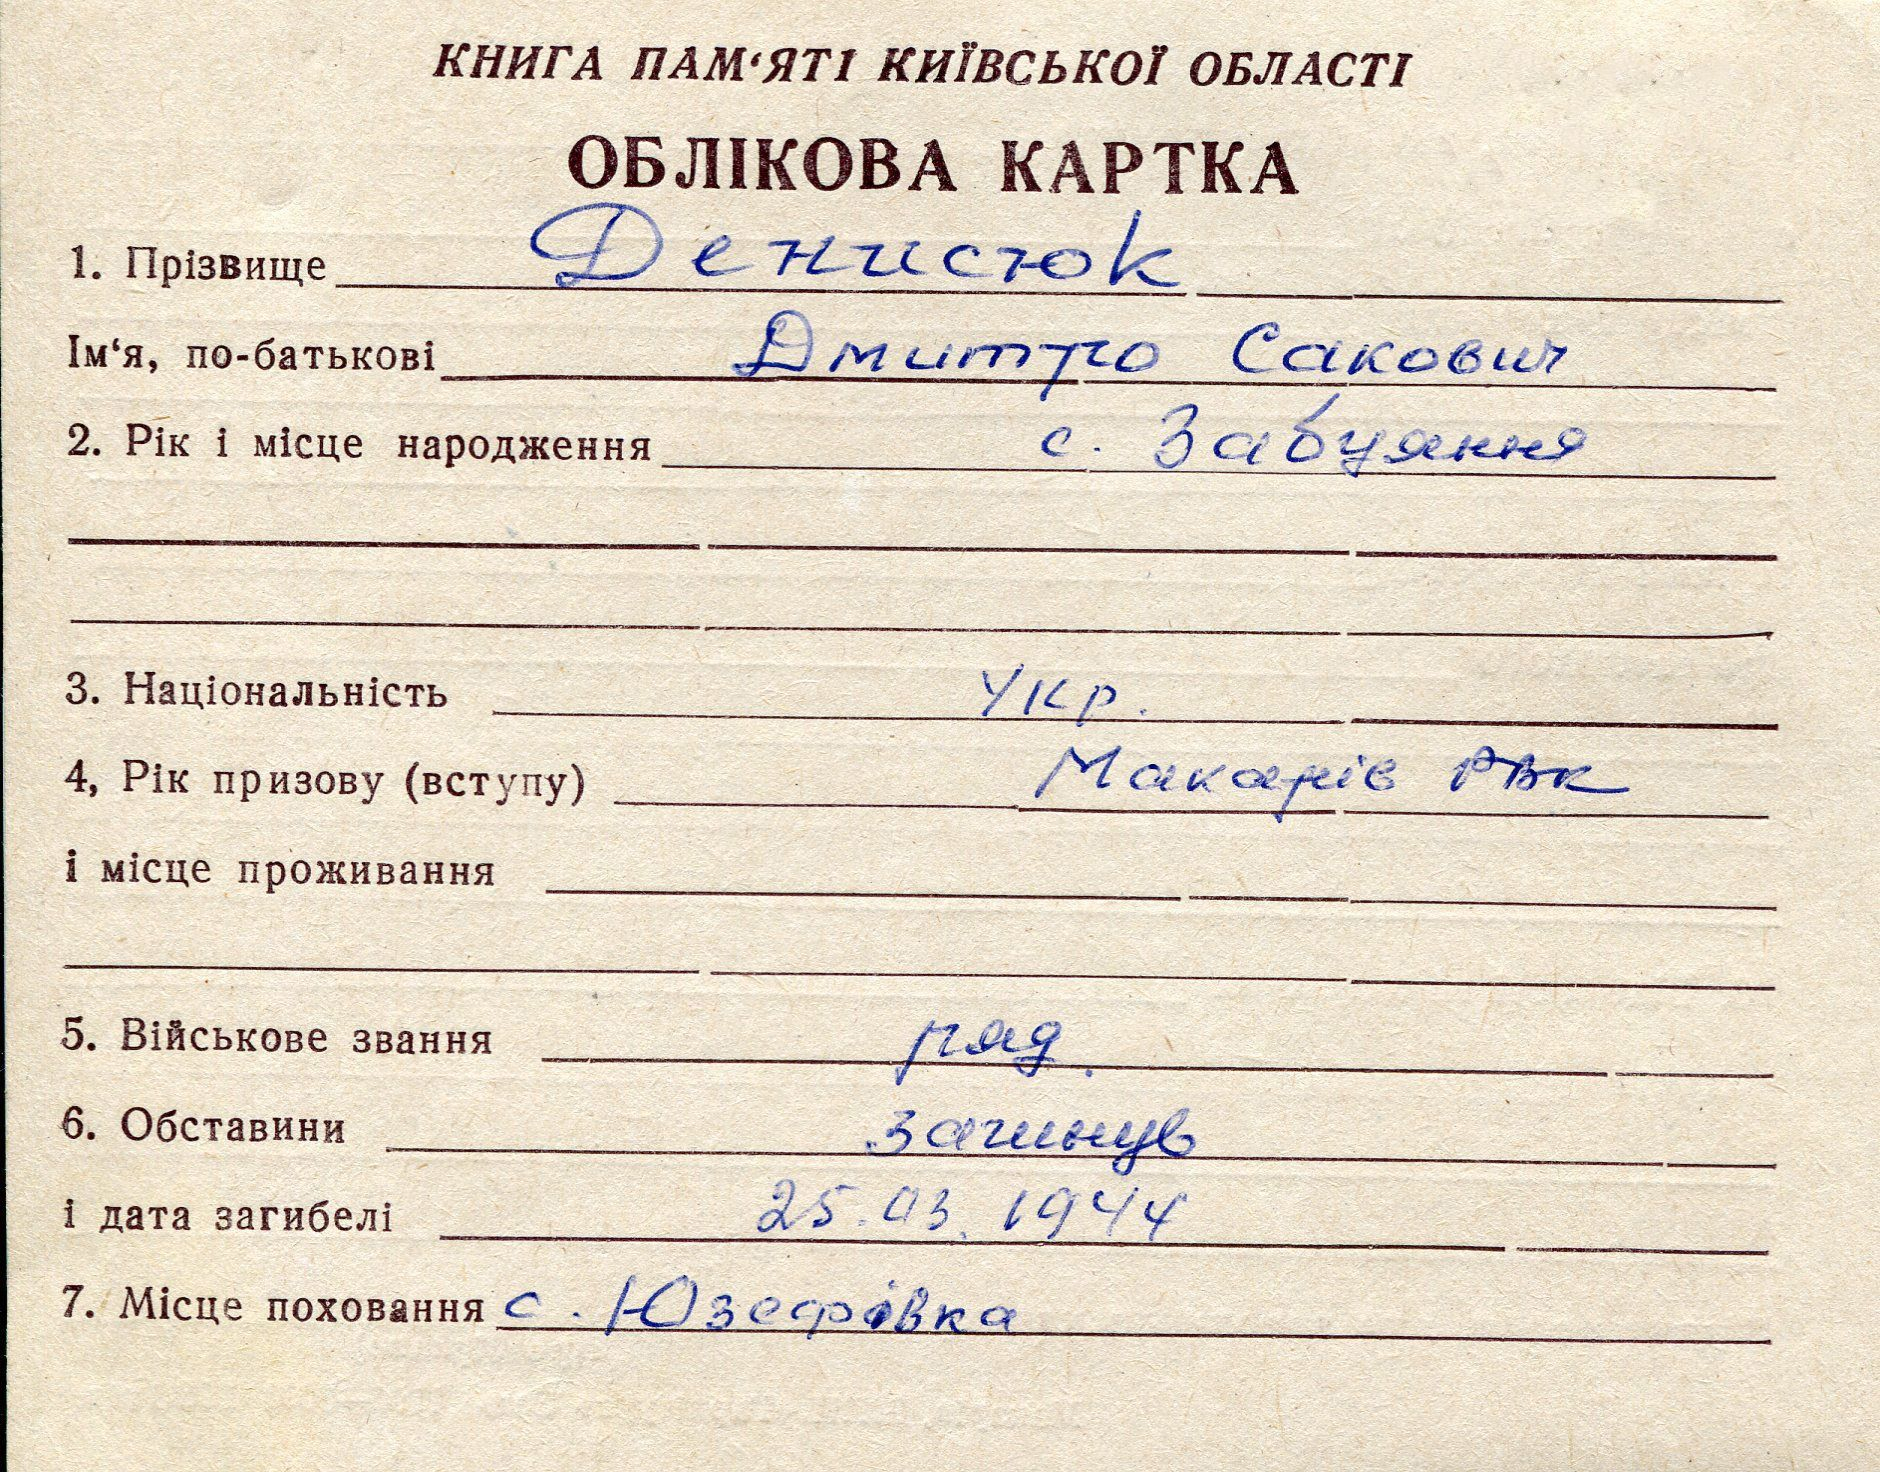 КНИГА ПАМ‘ЯТІ КИЇВСЬКОЇ ОБЛАСТІ
ОБЛІКОВА КАРТКА
1. Прізвище Денисюк
Ім‘я, по-батькові Дмитро Сакович
2. Рік і місце народження с. Забуяння
3. Національність укр.
4, Рік призову (вступу) Макарів РВК
і місце проживання
5. Військове звання ряд.
6. Обставини загинув
і дата загибелі 25.03.1944
7. Місце поховання с. Юзефівка